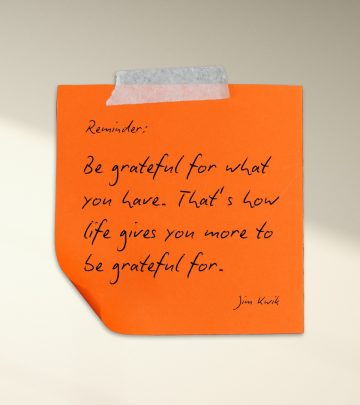 Reminder:
Be grateful for what
you have. That's how
life gives you more to
be grateful for.
Jim Kwik